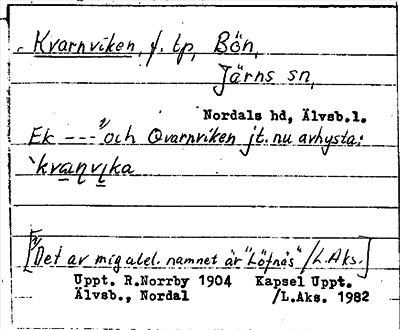 Kvarnviken, f. tp, Bön,
Järns sn,
Nordals hd, Älvsb.l.
Ek --- 2) och Qvarnviken jt. nu avhysta:
`kvaṇvıka
[2) Det av mig utel. namnet är "Löfnäs" /L.Aks.]
Uppt. R.Norrby 1904 Kapsel Uppt.
Älvsb., Nordal /L.Aks. 1982